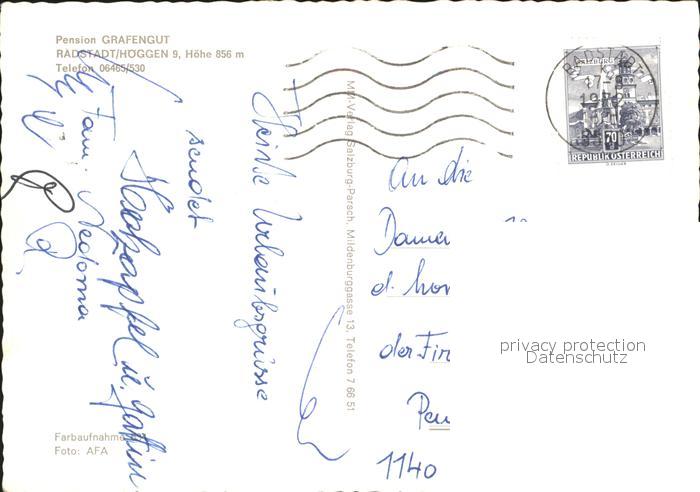 Pension GRAFENGUT
RADSTADT/HÖGGEN 9, Höhe 856 m
Telefon 06465/530
RADSTADT
REPUBLIK ÖSTERREICH
70
MM-Verlag Salzburg-Parsch, Mildenburggasse 13, Telefon 7 66 51
Herzliche Urlaubsgrüsse
sendet
Holzapfel u. Gattin
Fam. Nedoma
An die
Damen
d. Ho
der Fir
Pen
1140
privacy protection
Datenschutz
Farbaufnahme
Foto: AFA